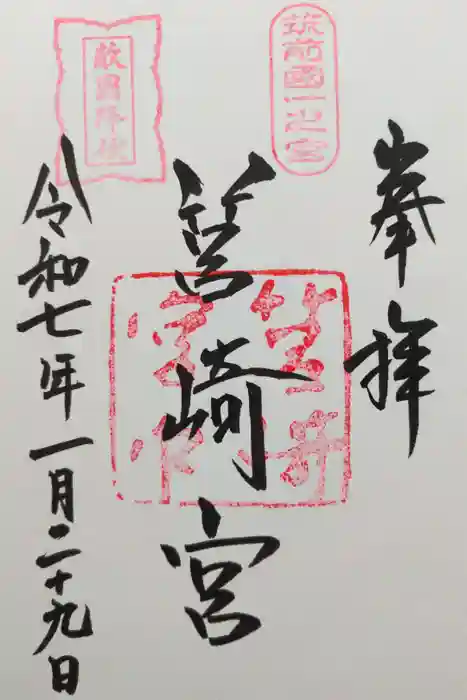 奉拝
筑前國一之宮
筥崎宮
敵國降伏
令和七年一月二十九日